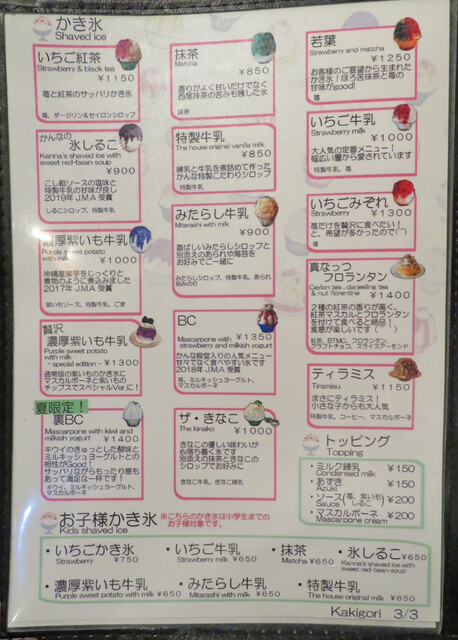 かき氷
Shaved ice
いちご紅茶
Strawberry & black tea
¥1150
苺と紅茶のサッパリかき氷
苺、ダージリン&セイロンシロップ
かんなの
氷しるこ
Kanna's shaved ice with
sweet red-bean soup
¥900
こし餡ソースの塩味と
特製牛乳の甘味が良し
2019年 J.M.A 受賞
しるこシロップ、特製牛乳
濃厚紫いも牛乳
Purple sweet potato
with milk
¥1000
沖縄産紫芋をじっくりと
煮物のように煮込みました
2017年 J.M.A 受賞
紫いもソース、特製牛乳、ごま
贅沢
濃厚紫いも牛乳
Purple sweet potato
with milk
- special edition - ¥1300
通常版の紫いものかき氷に
マスカルポーネと紫いもの
チップスでスペシャルVerに!
夏限定!
裏BC
Mascarpone with kiwi and
milkish yogurt
¥1400
キウイのきゅっとした酸味と
ミルキッシュヨーグルトとの
相性がGood!
サッパリながらもったり感も
あって満足な一杯です!
キウイ、ミルキッシュヨーグルト、
マスカルポーネ
抹茶
Matcha
¥850
香りがよく甘いだけでなく
西尾抹茶の苦みも残した氷
抹茶
特製牛乳
The house original vanilla milk
¥850
練乳と牛乳を煮詰めて作った
かんな特製こだわりシロップ
特製牛乳
みたらし牛乳
Mitarashi with milk
¥900
香ばしいみたらしシロップと
別添えのあられや海苔を
お好みでご一緒に
みたらしシロップ、特製牛乳、あられ
刻みのり
BC
Mascarpone with ¥1350
strawberry and milkish yogurt
かんな殿堂入りの人気メニュー
甘てなくて食べやすい氷です
2018年 J.M.A 受賞
苺、ミルキッシュヨーグルト、
マスカルポーネ
ザ・きなこ
The kinako
¥1000
きなこの優しい味わいが
心落ち着く氷です
別添えの抹茶ときなこの
シロップでお好みに
きなこ牛乳、きなこ練乳
若葉
Strawberry and matcha
¥1250
お客様のご要望から生まれた
かき氷!ほろ苦抹茶と苺の
甘味がgood!
苺
いちご牛乳
Strawberry milk
¥1000
大人気の定番メニュー!
幅広い層から愛されています
特製牛乳、苺
いちごみぞれ
Strawberry
¥1300
苺だけを贅沢に食べたい!
と、希望が多かったので( )
苺
真なっつ
フロランタン
Ceylon tea, darjeeling tea
& nut florentine
¥1400
2種の紅茶の香りが高く、
紅茶マスカルとフロランタン
を付けて食べると絶品!
食感が楽しいです( )
紅茶、BTMC、フロランタン、
クラフトチョコ、スライスアーモンド
ティラミス
Tiramisu
¥1150
まさにティラミス!
小さな子からも大人気
特製牛乳、コーヒー、マスカルポーネ
トッピング
Topping
・ミルク練乳 ¥150
Condensed milk
・あずき ¥150
Azuki
・ソース(苺、紫いも) ¥200
Sauce しるこ
・マスカルポーネ ¥200
Mascarpone cream
お子様かき氷
Kids shaved ice
※こちらのかき氷は小学生までの
お子様対象です。
・いちごかき氷
Strawberry ¥750
・いちご牛乳
Strawberry with milk ¥650
・抹茶
Matcha ¥650
・氷しるこ ¥650
Kanna's shaved ice with
sweet red-bean soup
・濃厚紫いも牛乳
Purple sweet potato with milk ¥650
・みたらし牛乳
Mitarashi with milk ¥650
・特製牛乳
The house original milk ¥650
Kakigori 3/3